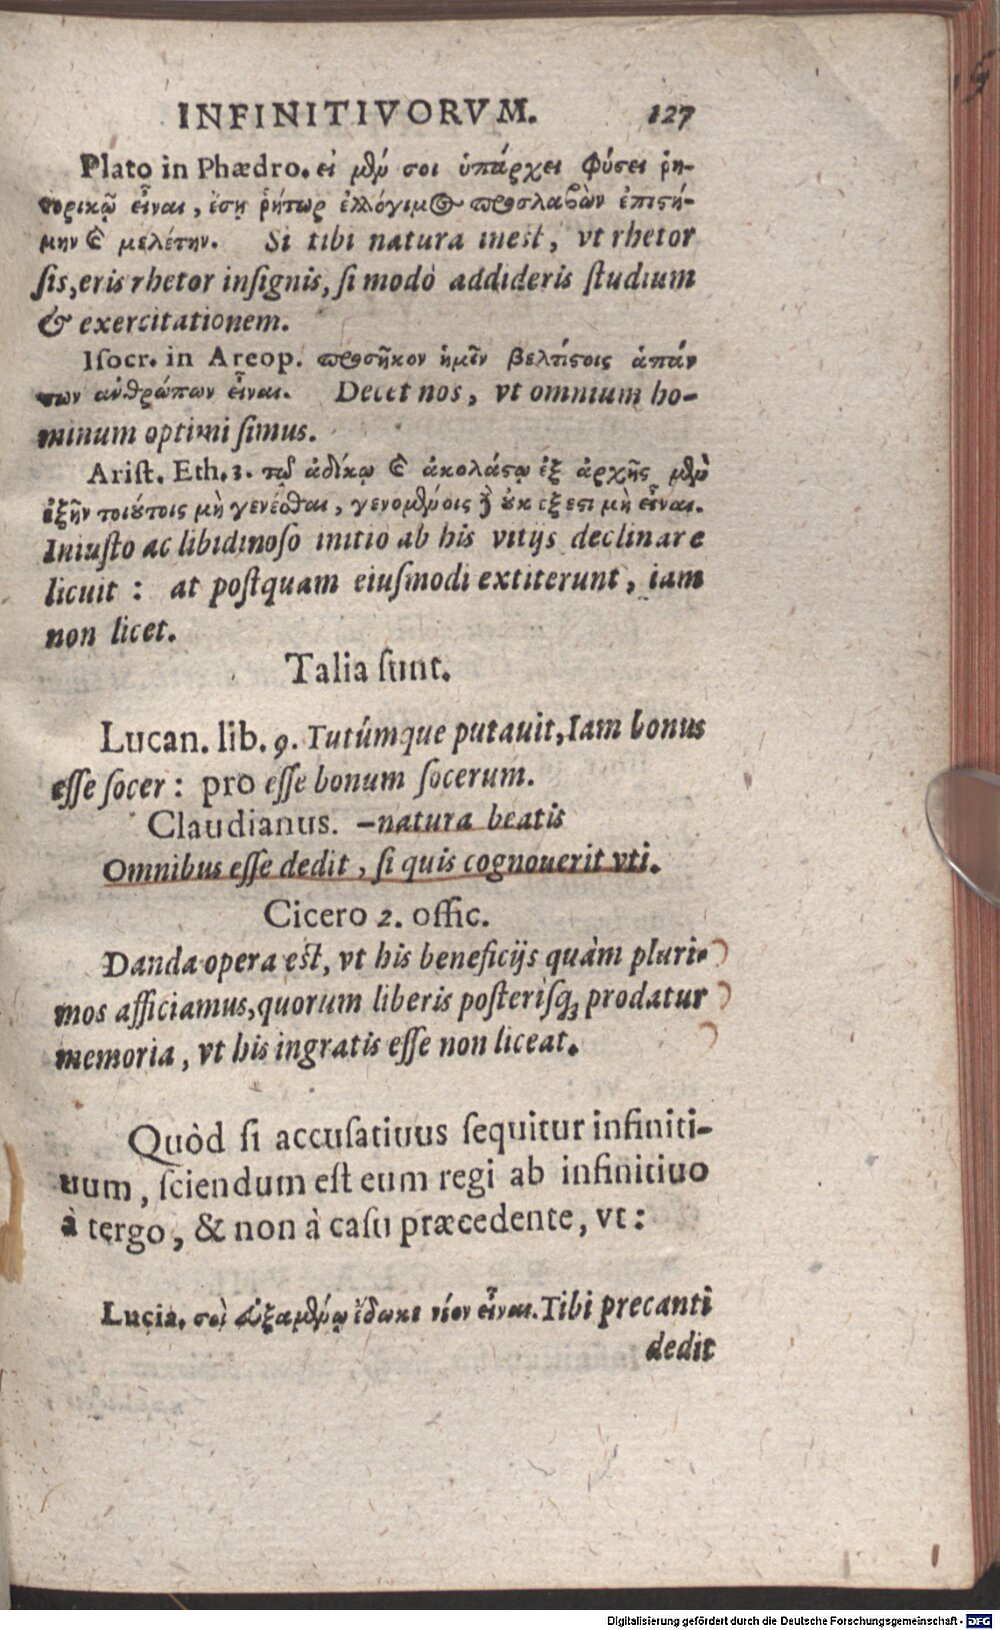 INFINITIVORVM. 127
Plato in Phædro. εἰ μὲν σοι ὑπάρχει φύσει ῥη-
τορικῷ εἶναι, ἔσῃ ῥήτωρ ἐλλόγιμος προσλαβὼν ἐπιστή-
μην καὶ μελέτην. Si tibi natura inest, vt rhetor
ſis, eris rhetor inſignis, ſi modò addideris ſtudium
& exercitationem.
Iſocr. in Areop. προσῆκον ἡμῖν βελτίστοις ἁπάν
των ἀνθρώπων εἶναι. Decet nos, vt omnium ho-
minum optimi ſimus.
Ariſt. Eth. 3. τῷ ἀδίκῳ καὶ ἀκολάστῳ ἐξ ἀρχῆς μὲν
ἐξῆν τοιούτοις μὴ γενέσθαι, γενομένοις δὲ οὐκ ἔξεστι μὴ εἶναι.
Iniuſto ac libidinoſo initio ab his vitijs declinare
licuit : at poſtquam eiuſmodi extiterunt, iam
non licet.
Talia ſunt.
Lucan. lib. 9. Tutúmque putauit, Iam bonus
eſſe ſocer : pro eſſe bonum ſocerum.
Claudianus. –natura beatis
Omnibus eſſe dedit, ſi quis cognouerit vti.
Cicero 2. offic.
Danda opera eſt, vt his beneficijs quàm pluri-
mos afficiamus, quorum liberis poſteriſq; prodatur
memoria, vt his ingratis eſſe non liceat.
Quòd ſi accuſatiuus ſequitur infiniti-
uum, ſciendum eſt eum regi ab infinitiuo
à tergo, & non à caſu præcedente, vt :
Lucia. σοὶ εὐξαμένῳ ἔδωκε νέον εἶναι. Tibi precanti
dedit
Digitalisierung gefördert durch die Deutsche Forschungsgemeinschaft - DFG